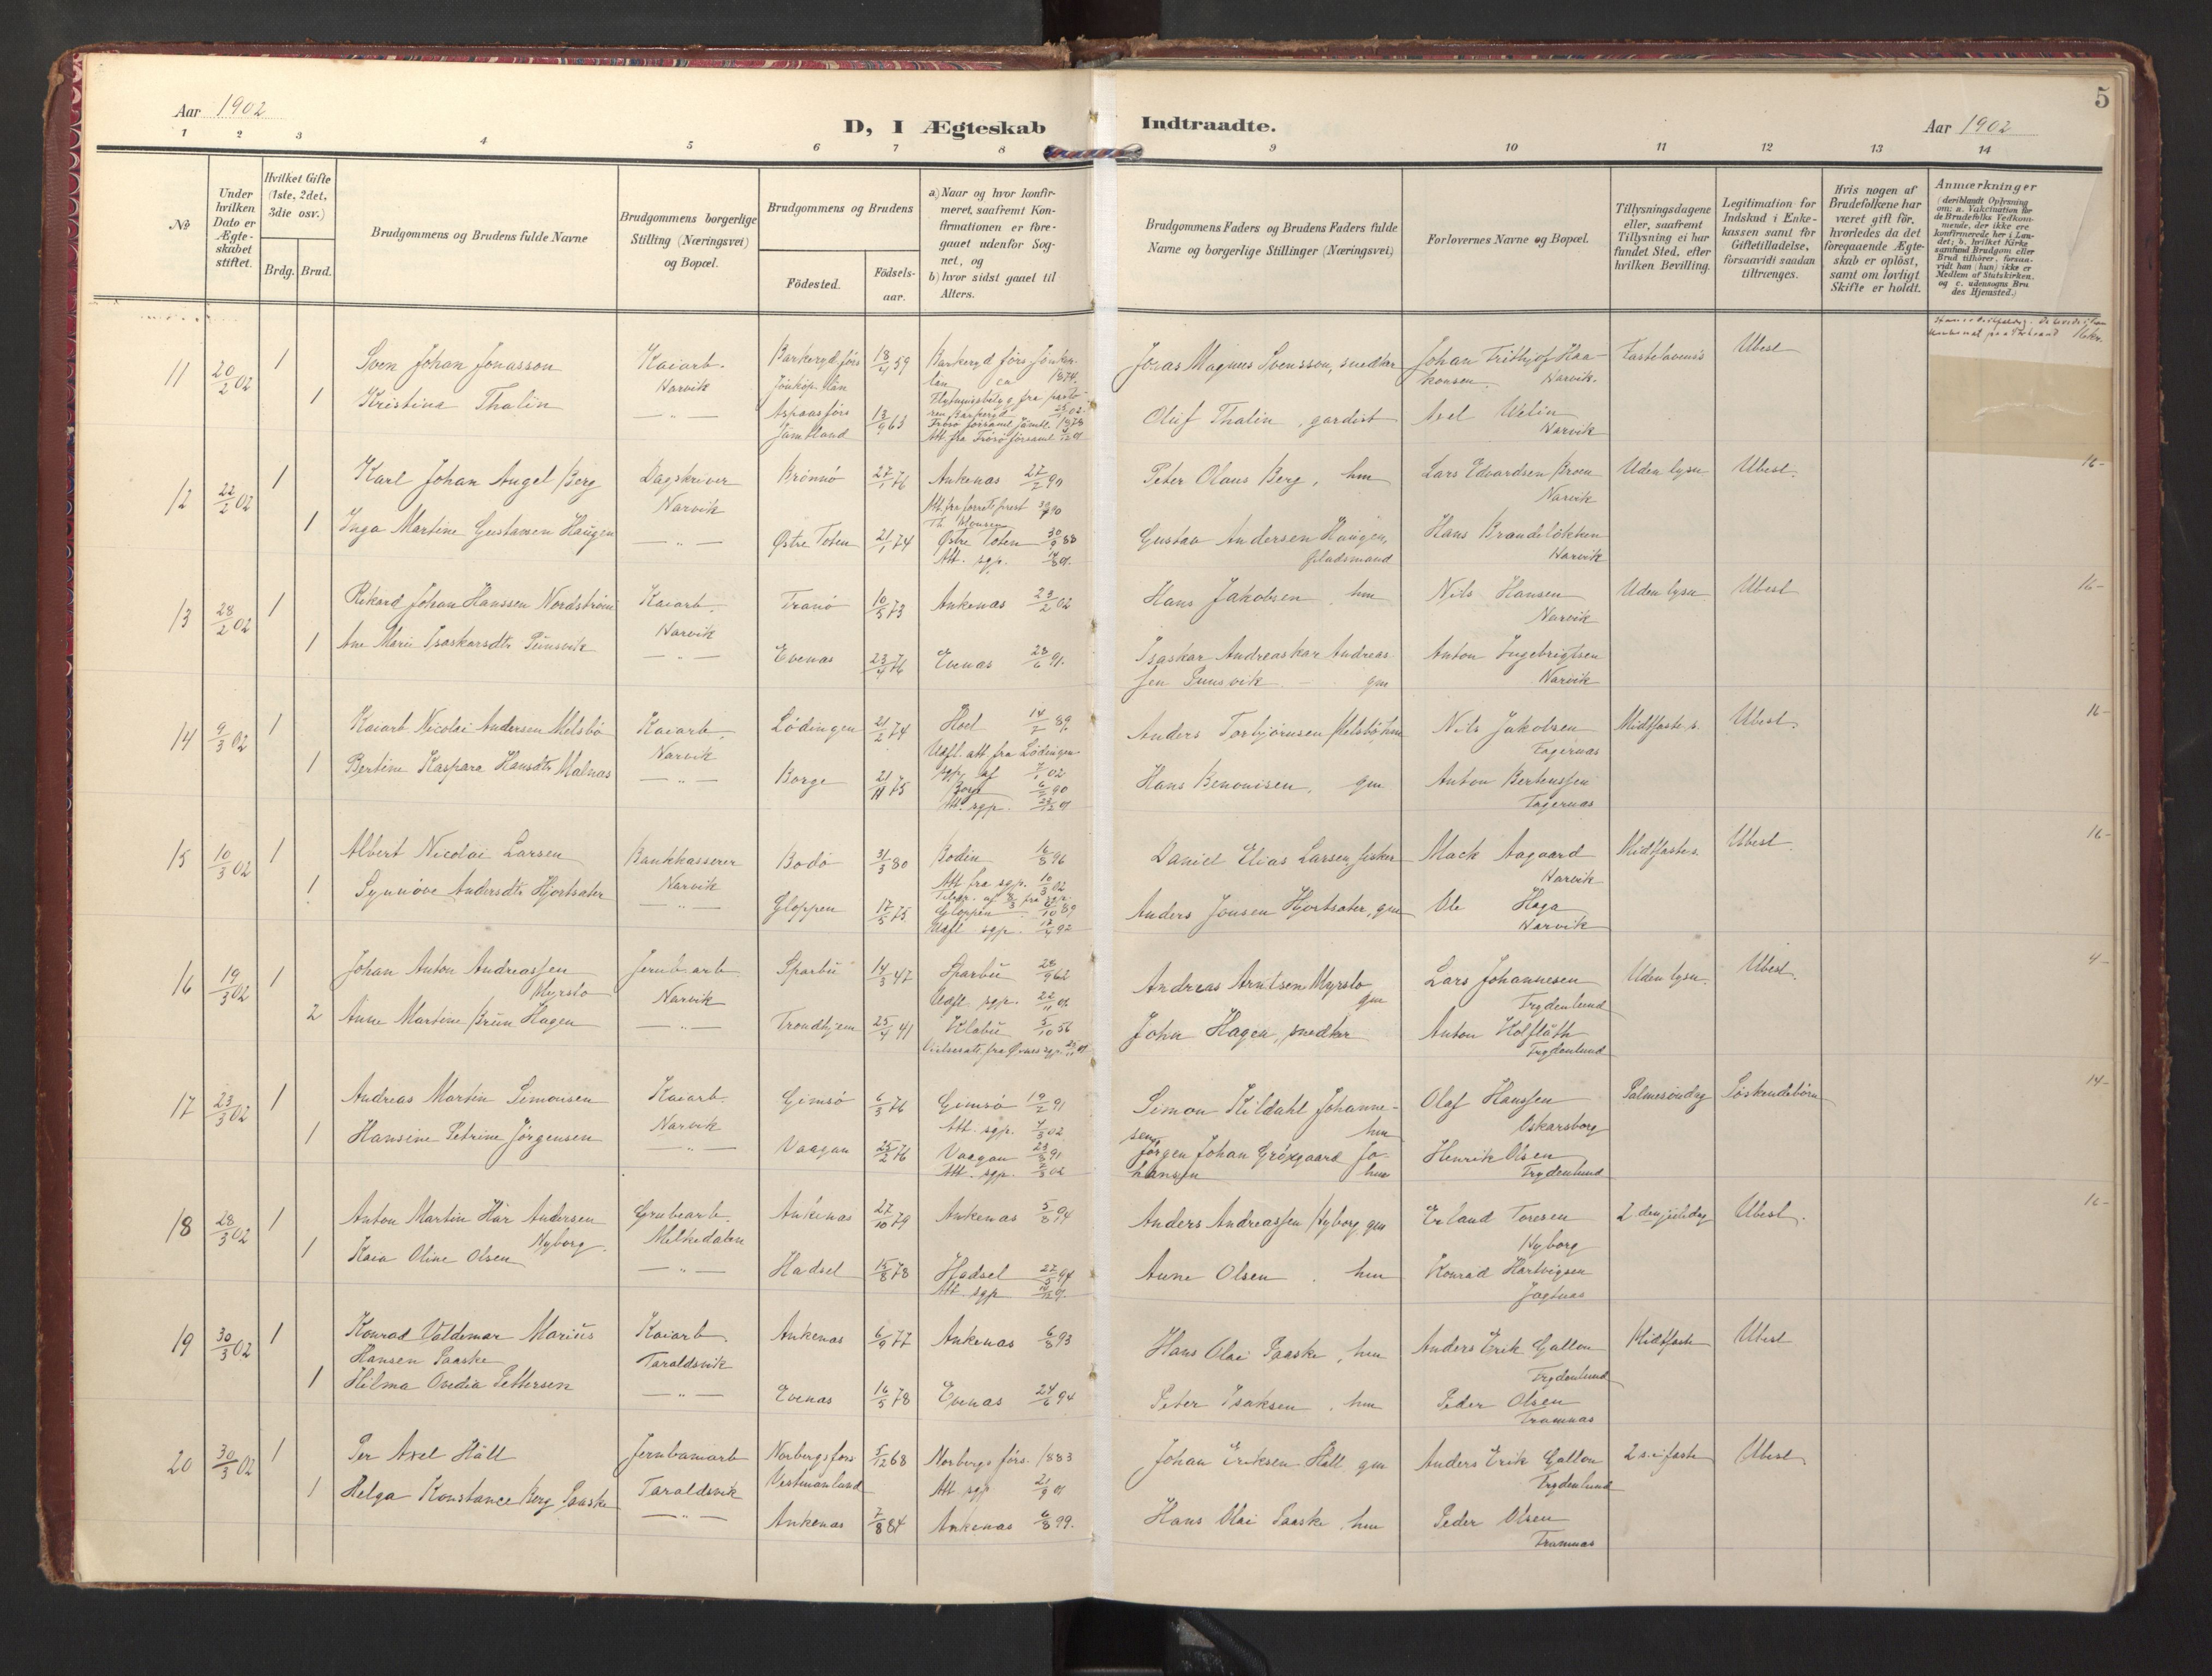 5
Aar 1902
D, I Ægteskab Indtraadte.
Aar 1902
1 2 3 4 5 6 7 8 9 10 11 12 13 14
No
Under hvilken Dato er Ægteskabet stiftet.
Hvilket Gifte (1ste, 2det, 3die osv.)
Brdg. Brud.
Brudgommens og Brudens fulde Navne
Brudgommens borgerlige Stilling (Næringsvei) og Bopæl.
Brudgommens og Brudens
Födested.
Födsels-aar.
a) Naar og hvor konfirmeret, saafremt Konfirmationen er foregaaet udenfor Sognet, og
b) hvor sidst gaaet til Alters.
Brudgommens Faders og Brudens Faders fulde Navne og borgerlige Stillinger (Næringsvei)
Forlovernes Navne og Bopæl.
Tillysningsdagene eller, saafremt Tillysning ei har fundet Sted, efter hvilken Bevilling.
Legitimation for Indskud i Enkekassen samt for Giftetilladelse, forsaavidt saadan tiltrænges.
Hvis nogen af Brudefolkene har været gift för, hvorledes da det foregaaende Ægteskab er oplöst, samt om lovligt Skifte er holdt.
Anmærkninger (deriblandt Oplysning om: a. Vakcination för de Brudefolks Vedkommende, der ikke ere konfirmerede her i Landet; b. hvilket Kirkesamfund Brudgom eller Brud tilhörer, forsaavidt han (hun) ikke er Medlem af Statskirken, og c. udensogns Brudes Hjemsted.)
11 20/2 02 1 Sven Johan Jonasson Kaiarb. Narvik Barkeryd förs Jönköp. län 18/4 59 Barkeryd förs Jönkön. län ca 1874. Jonas Magnus Svensson, snedker Johan Frithjof Haakonsen Narvik. Fastelavens Ubesl
1 Kristina Thalin — " — Aspaas förs Jämtland 13/9 63 Frösö församl Jämtl. 1878 Att. fra Frösö församl Oluf Thalin, gardist Axel Welin Narvik
12 22/2 02 1 Karl Johan Angel Berg Dagskriver Narvik Brönnö 27/1 76 Ankenas 27/2 90 Peter Olaus Berg, hm Lars Edvardsen Broen Narvik Uden lysn Ubesl. 16-
1 Inga Martine Gustavsen Haugen — " — Østre Toten 21/1 74 Østre Toten 30/9 88 Att. sgp. Gustav Andersen Haugen, pladsmand Hans Brandelökken Narvik
13 28/2 02 1 Rikard Johan Hanssen Nordström Kaiarb. Narvik Tranö 10/5 73 Ankenas 23/2 02 Hans Jakobsen, hm Nils Hansen Narvik Uden lysn Ubesl 16-
1 Ane Marie Isaskarsdtr Punsvik — " — Evenas 23/4 76 Evenas 28/6 91. Isaskar Andreaskar Andreassen Punsvik — gm Anton Ingebrigtsen Narvik
14 9/3 02 1 Kaiarb Nicolai Andersen Melsbö Kaiarb. Narvik Lödingen 21/2 74 Hol 14/7 89. Uafl. att. fra Lödingen sgp. af 7/1 02 Anders Torbjörnsen Melsbö hm Nils Jakobsen Fagernas Midtfaste s. Ubesl. 16-
1 Bertine Kaspara Hansdtr Malnas — " — Borge 21/11 75 Borge 6/7 90 Att. sgp. Hans Benonisen, gm Anton Bertenssen Fagernas
15 10/3 02 1 Albert Nicolai Larsen Bankkasserer Narvik Bodö 31/3 80 Bodin 16/8 96 Att fra sgp. 10/3 02 Daniel Elias Larsen, fisker Mack Aagaard Narvik Midtfaste s. Ubesl. 16-
1 Synnöve Andersdtr Hjortsater — " — Gloppen 17/5 75 Gloppen 6/10 89 Uafl. sgp. 17/4 92 Anders Jonsen Hjortsater, gm Ole Haga Narvik
16 19/3 02 1 Johan Anton Andreassen Myrslo Jernb.arb. Narvik Sparbu 14/3 47 Sparbu 28/9 62 Uafl. sgp. 22/11 01. Andreas Arntsen Myrslo gm Lars Johannesen Frydenlund Uden lysn. Ubesl. 4-
2 Anne Martine Brun Hagen — " — Trondhjem 25/4 41 Klabu 5/10 56 John Hagen, snedker Anton Holflath Frydenlund
17 23/3 02 1 Andreas Martin Simonsen Kaiarb. Narvik Gimsö 6/3 76 Gimsö 19/7 91 Att. sgp. 7/3 02 Simon Kildahl Johannesen hm Olaf Hanssen Oskarsborg Palmesöndag Söskendebörn 14-
1 Hansine Petrine Jörgensen — " — Vaagan 25/2 76 Vaagan 23/8 91 Att. sgp. Jörgen Johan Gröxgaard Johansen hm Henrik Olsen Frydenlund
18 28/3 02 1 Anton Martin Hår Andersen Nyborg. Grubearb. Melkedalen Ankenas 27/10 79 Ankenas 5/8 94 Anders Andreassen Nyborg, gm Erland Toresen Nyborg 2. den juledag Ubesl. 16-
1 Kaia Oline Olsen — " — Hadsel 15/8 78 Hadsel Att sgp Anne Olsen, hm Konrad Hartvigsen Jagtnas
19 30/3 02 1 Konrad Valdemar Marius Hansen Paaske Kaiarb. Taraldsvik Ankenas 6/9 77 Ankenas 6/8 93 Hans Olai Paaske, hm Anders Erik Gallon Frydenlund Midtfaste Ubesl
1 Hilma Ovedia Pettersen — " — Evenas 16/5 78 Evenas 24/6 94 Peter Isaksen, hm Peder Olsen Framnas
20 30/3 02 1 Per Axel Häll Jernbanearb Taraldsvik Norbergs fors Vestmanland 5/12 68 Norbergs förs. 1883 Att. sgp. 21/9 01 Johan Eriksen Häll gm Anders Erik Gallon Frydenlund 2 s. i faste Ubesl
1 Helga Konstance Berg Paaske — " — Ankenas 7/8 84 Ankenas 6/8 99. Hans Olai Paaske, hm Peder Olsen Framnas